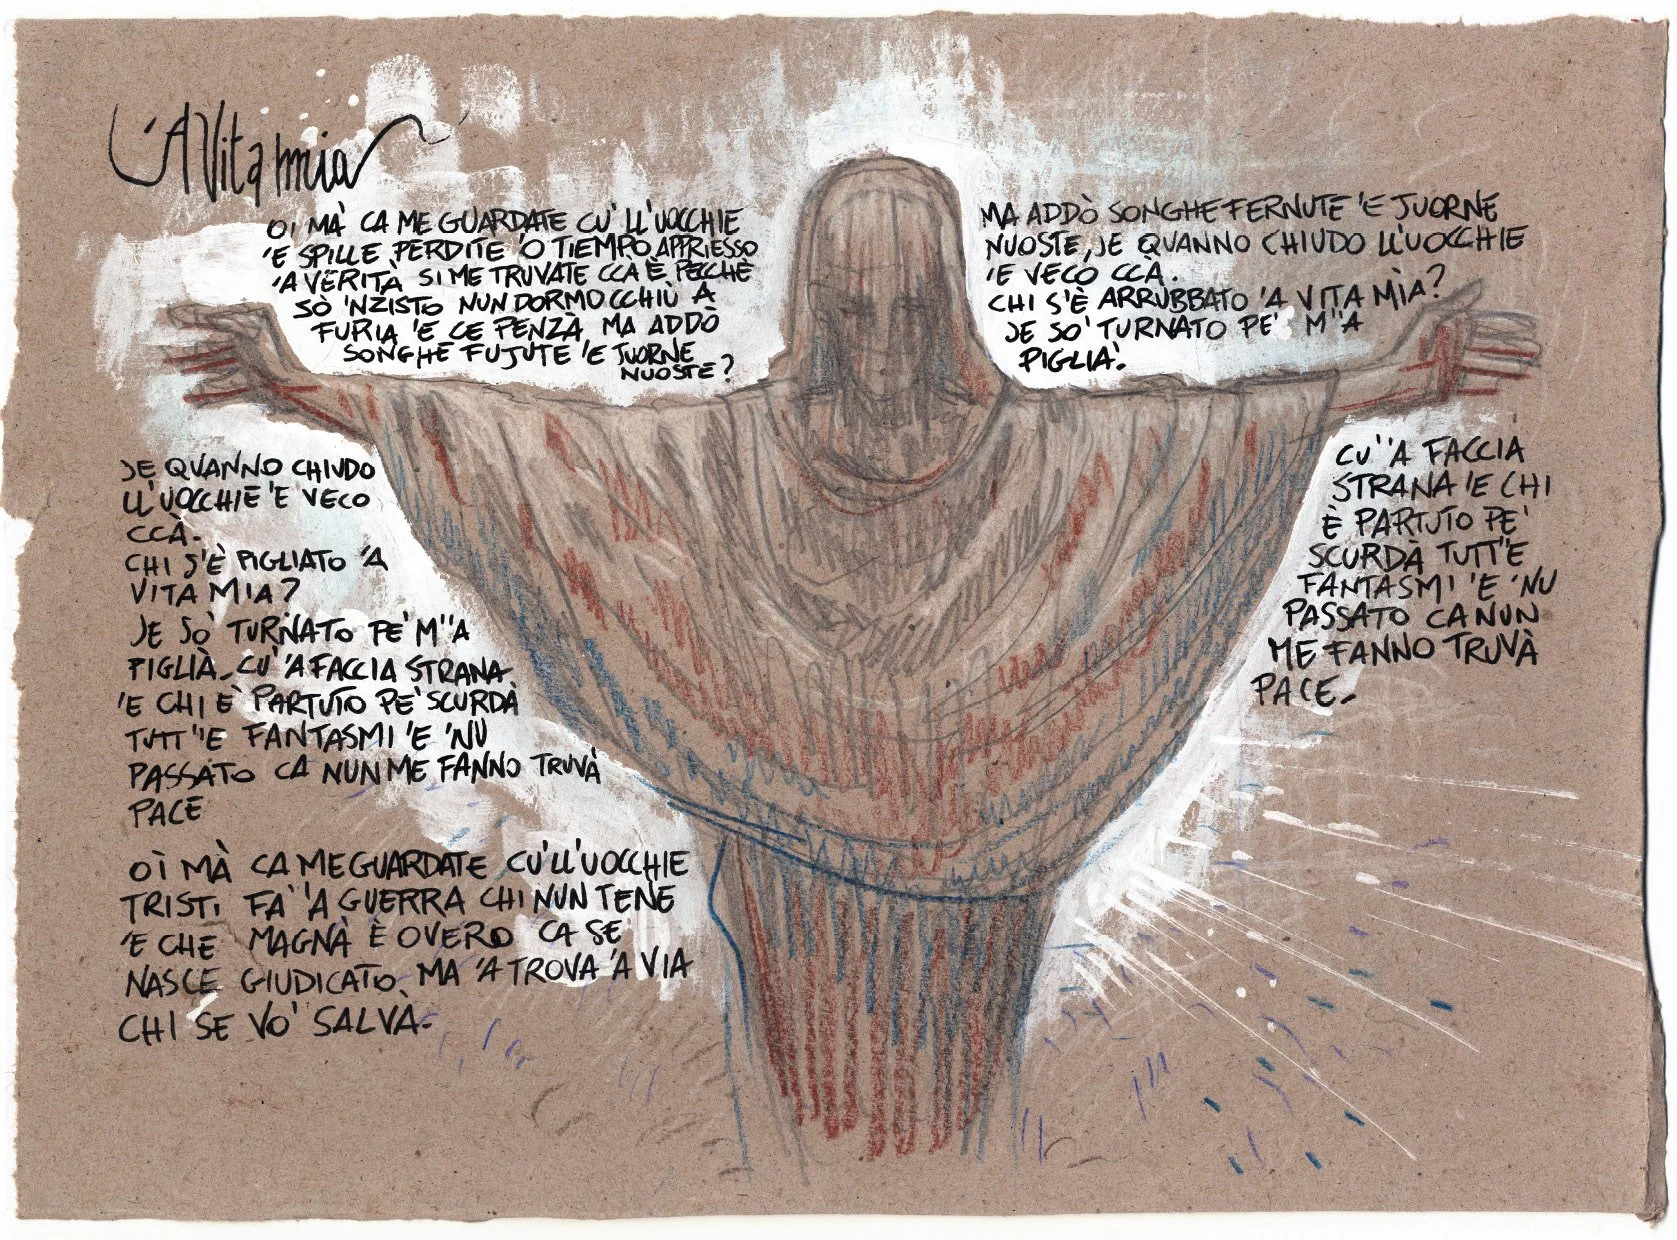 'A Vita mia
OI MÀ CA ME GUARDATE CU' LL'UOCCHIE
'E SPILLE PERDITE 'O TIEMPO APPRIESSO
'A VERITÀ SI ME TRUVATE CCA È PECCHÈ
SÒ 'NZISTO NUN DORMO CCHIÙ A
FURIA 'E CE PENZÀ MA ADDÒ
SONGHE FUJUTE 'E JUORNE
NUOSTE?
JE QUANNO CHIUDO
LL'UOCCHIE 'E VECO
CCÀ.
CHI S'È PIGLIATO 'A
VITA MIA?
JE SO' TURNATO PE' M''A
PIGLIÀ. CU' 'A FACCIA STRANA
'E CHI È PARTUTO PE' SCURDÀ
TUTT''E FANTASMI 'E 'NU
PASSATO CA NUN ME FANNO TRUVÀ
PACE
OÌ MÀ CA ME GUARDATE CU'LL'UOCCHIE
TRISTI FA' 'A GUERRA CHI NUN TENE
'E CHE MAGNÀ È OVERO CA SE
NASCE GIUDICATO, MA 'A TROVA 'A VIA
CHI SE VO' SALVÀ.
MA ADDÒ SONGHE FERNUTE 'E JUORNE
NUOSTE, JE QUANNO CHIUDO LL'UOCCHIE
'E VECO CCÀ.
CHI S'È ARRUBBATO 'A VITA MÌA?
JE SO' TURNATO PE' M''A
PIGLIA'.
CU''A FACCIA
STRANA 'E CHI
È PARTUTO PE'
SCURDÀ TUTT'E
FANTASMI 'E 'NU
PASSATO CA NUN
ME FANNO TRUVÀ
PACE.